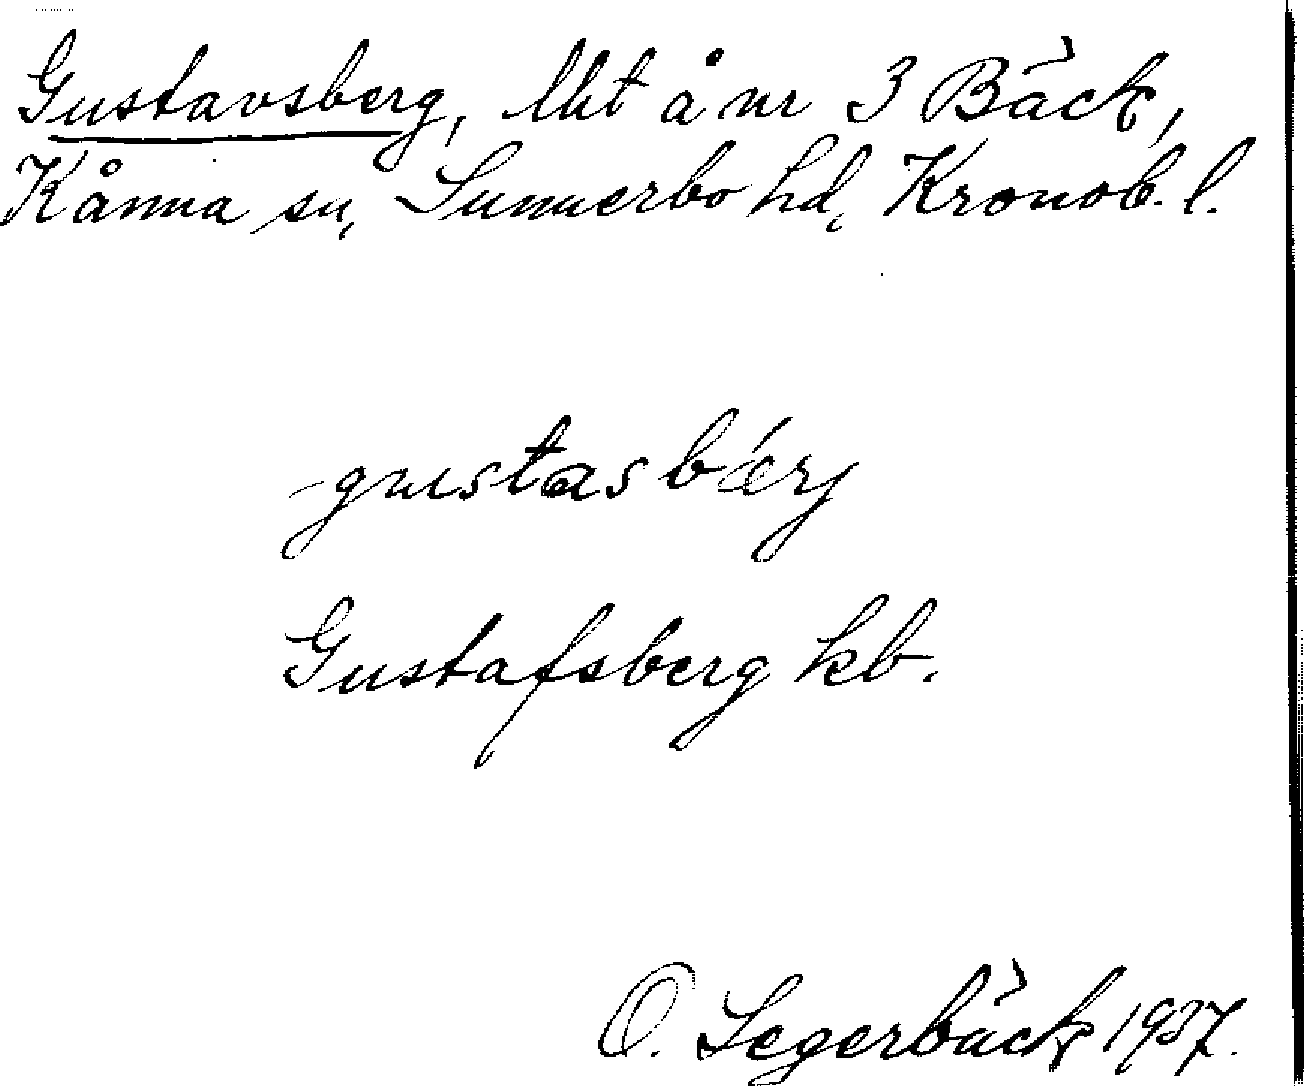 Gustavsberg, lht å nr 3 Bäck,
Kånna sn, Sunnerbo hd, Kronob. l.
-gustasbærj
Gustafsberg kb.
O. Segerbäck 1937.